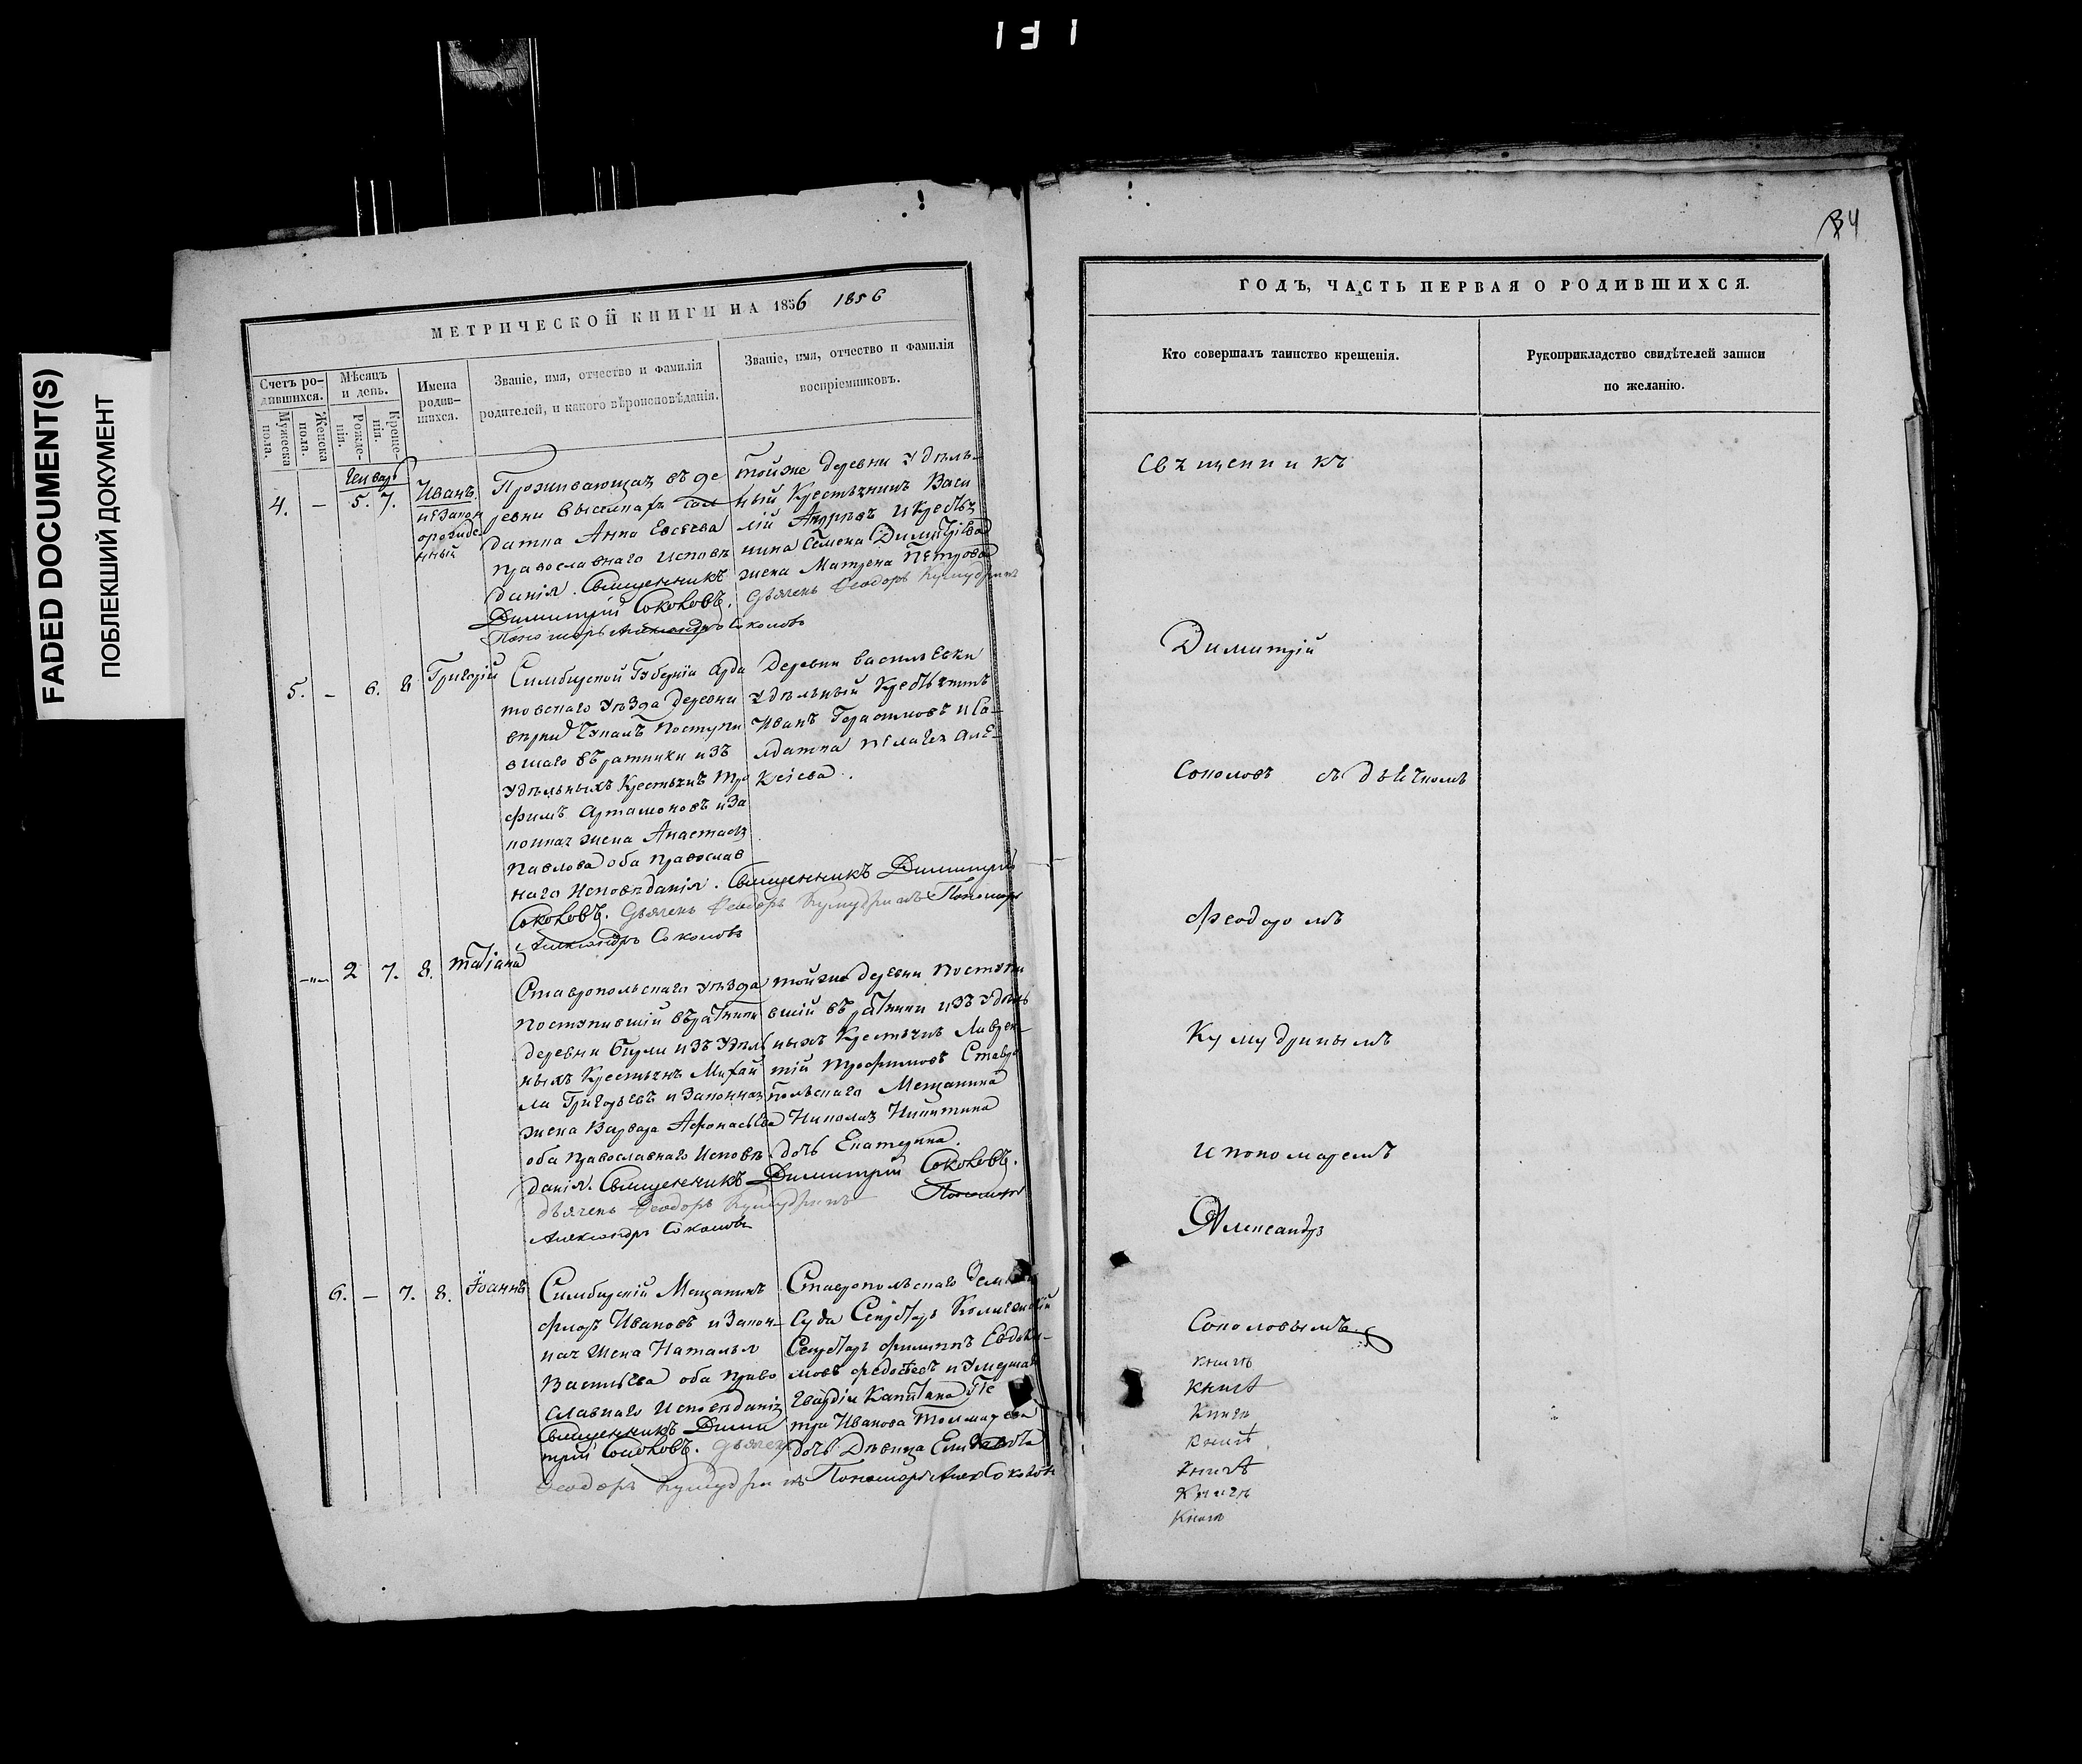 FADED DOCUMENT(S)
ПОБЛЕКШИЙ ДОКУМЕНТ
МЕТРИЧЕСКОЙ КНИГИ НА 1856 1856
Счетъ ро-
дившихся.
Мужеска
пола.
Женска
пола.
Мѣсяцъ
и день.
Рожде-
нія.
Креще-
нія.
Имена
родив-
шихся.
Званіе, имя, отчество и фамилія
родителей, и какого вѣроисповѣданія.
Званіе, имя, отчество и фамилія
воспріемниковъ.
4. — 5. 7.
Иванъ
незакон
норожде
нный
Проживающая въ де
ревни Выселкахъ Сол
датка Анна Евсѣева
православнаго исповѣ
данія. Священникъ
Димитрій Соколовъ.
Пономарь Александръ Соколовъ
тойже деревни удѣль-
ный Крестьянинъ Васи
лій Андреевъ и Крестья
нина Семена Димитріева
жена Матрена Петрова
Дьячекъ Феодоръ Кумудринъ
5. — 6. 8
Григорій
Симбирской Губерніи Арда
товскаго уѣзда деревни
поступи
вшаго въ ратники изъ
удѣльныхъ Крестьянъ Тро
фимъ Артамоновъ и за
конная жена Анастасія
Павлова оба Православ
наго Исповѣданія. Священникъ Димитрій
Соколовъ. Дьячекъ Феодоръ Кумудринъ Пономарь
Александръ Соколовъ
Деревни Васильевки
удѣльный Крестьянинъ
Иванъ Герасимовъ и Со-
лдатка Пелагея Але-
ксіева.
—„— 2 7. 8.
Татіана
Ставропольскаго уѣзда
поступившій въ ратники
деревни изъ удѣль
ныхъ Крестьянъ Михай
ла Григорьевъ и Законная
жена Варвара Афонасьева
оба православнаго Исповѣ
данія. Священникъ Димитрій Соколовъ.
Дьячекъ Феодоръ Кумудринъ Пономарь
Александръ Соколовъ
тойже деревни поступи
вшій въ ратники изъ удѣль
ныхъ Крестьянъ Лаврен-
тій Трофимовъ Ставро
польскаго Мещанина
Николая Никитина
дочь Екатерина.
6. — 7. 8.
Іоаннъ
Симбирскій Мещанинъ
Флоръ Ивановъ и Закон-
ная Жена Наталья
Васильева оба право
славнаго Исповѣданія
Священникъ Дими
трій Соколовъ. Дьячекъ
Феодоръ Кумудринъ Пономарь Алек Соколовъ
Ставропольскаго Земск
Суда Секретарь
Секретарь Филиппъ Евдоки-
мовъ Федосѣевъ и Умершаго
Гвардіи Капитана Пе
тра Иванова
дочь Дѣвица Елизавета
34
ГОДЪ, ЧАСТЬ ПЕРВАЯ О РОДИВШИХСЯ.
Кто совершалъ таинство крещенія.
Рукоприкладство свидѣтелей записи
по желанію.
Священникъ
Димитрій
Соколовъ съ дьячкомъ
Феодоромъ
Кумудринымъ
и пономаремъ
Александр
Соколовымъ.
книгѣ
книгѣ
Книгѣ
книгѣ
книгѣ
Книгѣ
Книгѣ